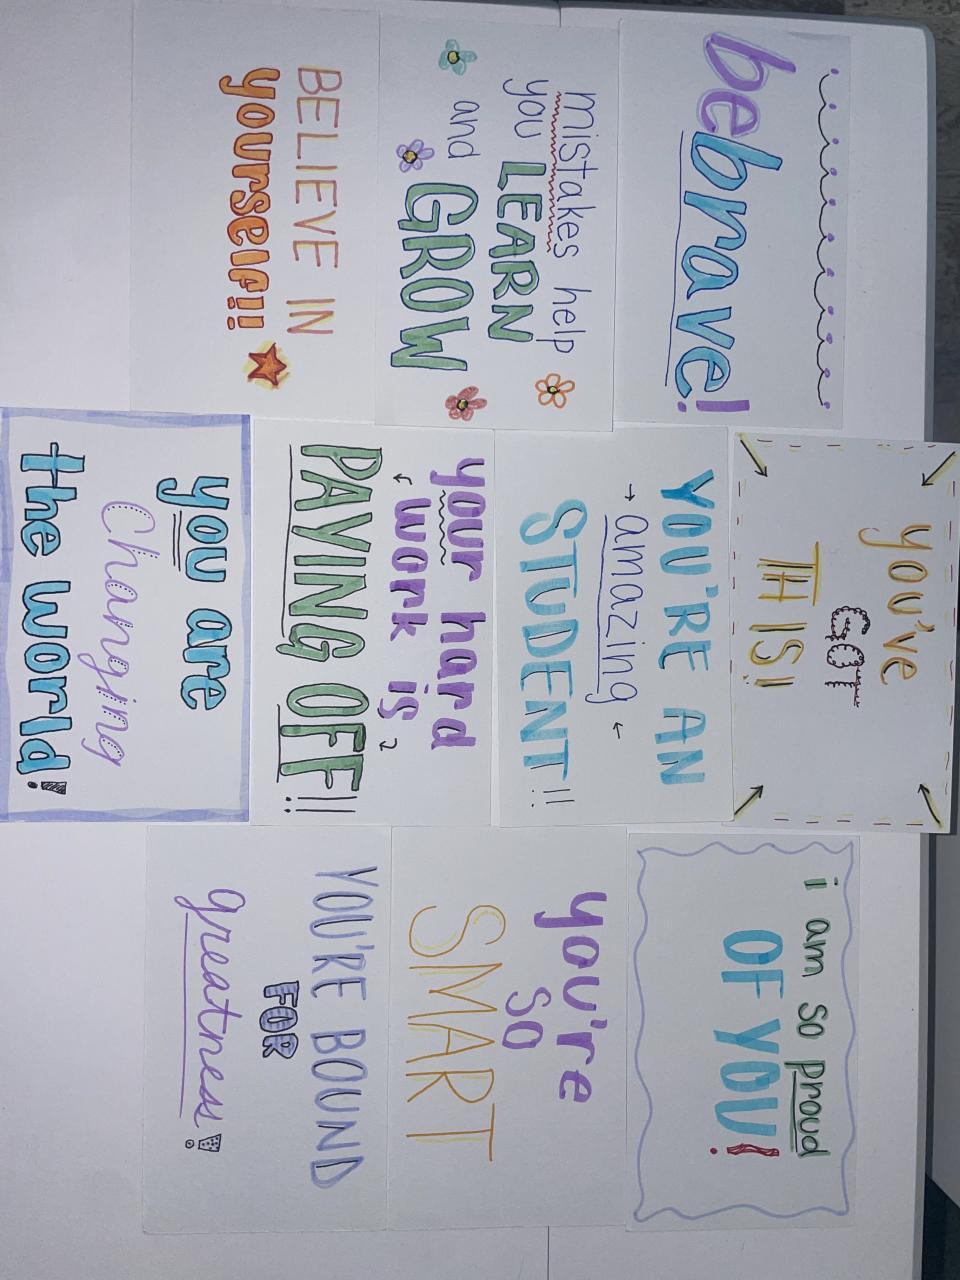 be brave!
mistakes help
you LEARN
and GROW
BELIEVE IN
yourself!!
you've
GOT
THIS!!
YOU'RE AN
→ amazing ←
STUDENT!!
your hard
work is
PAYING OFF!!!
you are
Changing
the world!
i am so proud
OF YOU!
you're
SO
SMART
YOU'RE BOUND
FOR
greatness!